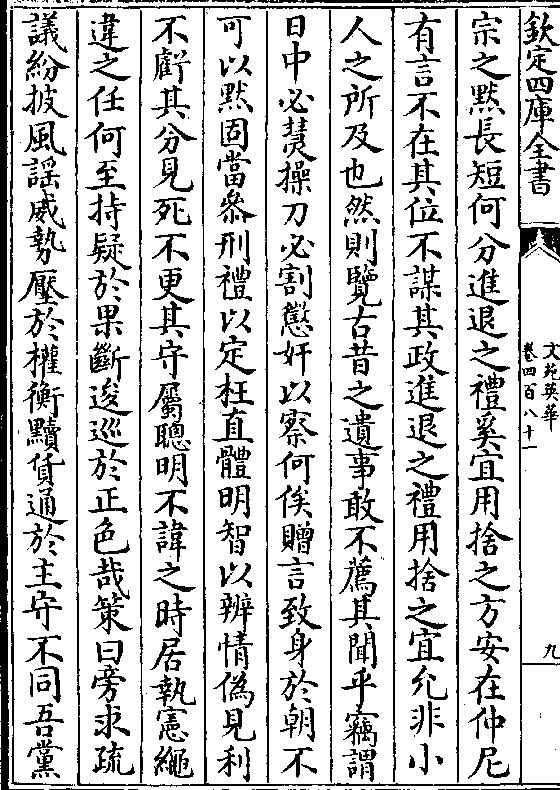 欽定四庫全書
文苑英華
卷四百八十一
九
宗之黙長短何分進退之禮奚宜用捨之方安在仲尼
有言不在其位不謀其政進退之禮用捨之宜允非小
人之所及也然則覽古昔之遺事敢不薦其聞乎竊謂
日中必熭操刀必割懲奸以察何俟贈言致身於朝不
可以黙固當叅刑禮以定枉直體明智以辨情偽見利
不虧其分見死不更其守屬聰明不諱之時居執憲繩
違之任何至持疑於果斷逡巡於正色哉策曰旁求疏
議紛披風謡威勢壓於權衡黷貨通於主守不同吾黨